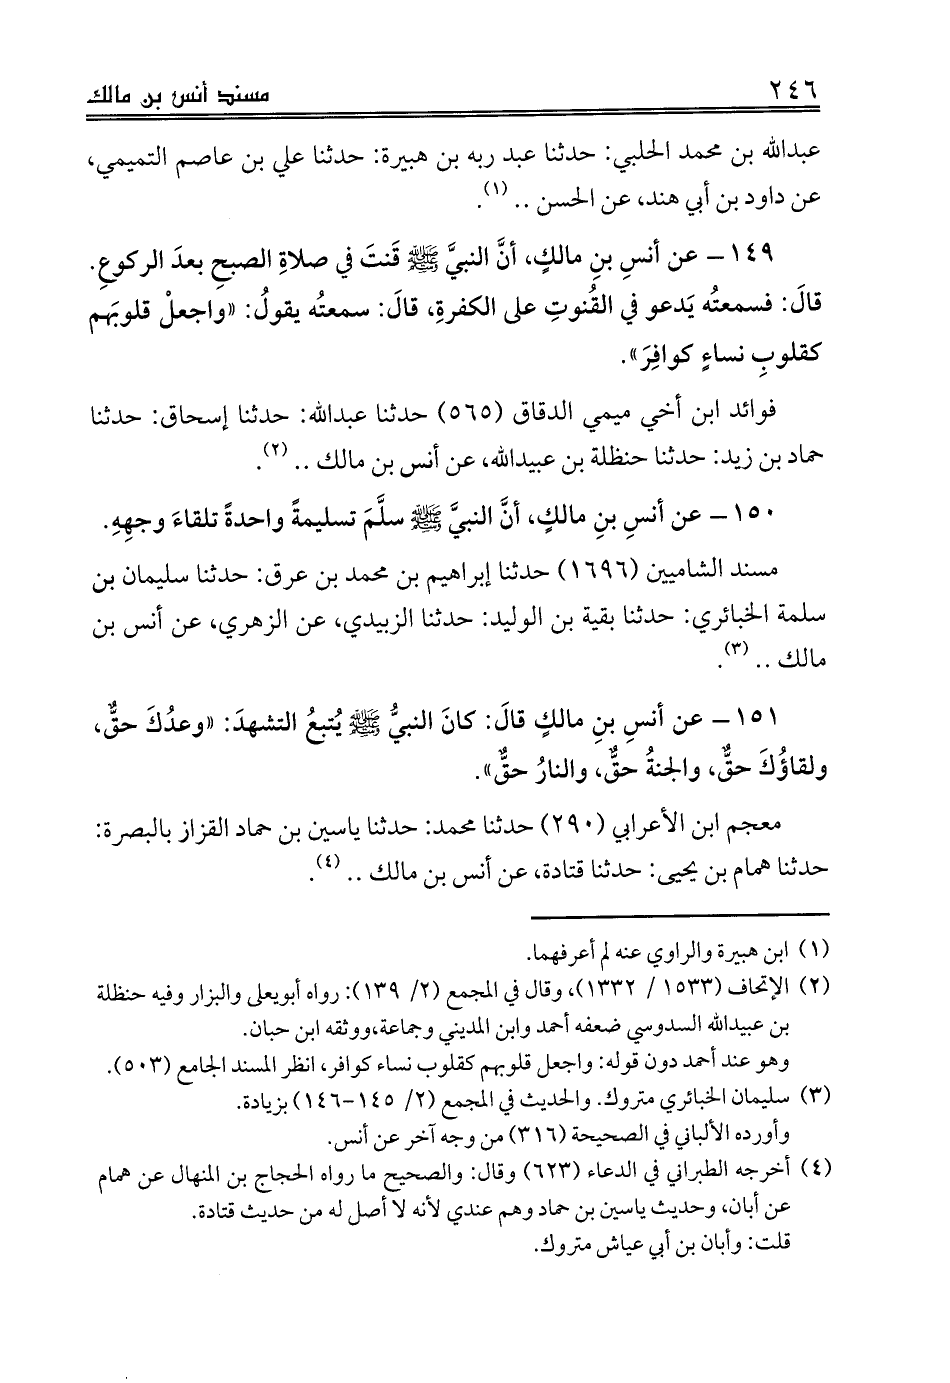 ٢٤٦ مسند أنس بن مالك
عبدالله بن محمد الحلبي: حدثنا عبد ربه بن هبيرة: حدثنا علي بن عاصم التميمي،
عن داود بن أبي هند، عن الحسن .. (١).
١٤٩ - عن أنسِ بنِ مالكٍ، أنَّ النبيَّ ﷺ قَنتَ في صلاةِ الصبحِ بعدَ الركوعِ.
قالَ: فسمعتُه يَدعو في القُنوتِ على الكفرةِ، قالَ: سمعتُه يقولُ: «واجعلْ قلوبَهم
كقلوبِ نساءٍ كوافِرَ».
فوائد ابن أخي ميمي الدقاق (٥٦٥) حدثنا عبدالله: حدثنا إسحاق: حدثنا
حماد بن زيد: حدثنا حنظلة بن عبيدالله، عن أنس بن مالك .. (٢).
١٥٠ - عن أنسِ بنِ مالكٍ، أنَّ النبيَّ ﷺ سلَّمَ تسليمةً واحدةً تلقاءَ وجهِهِ.
مسند الشاميين (١٦٩٦) حدثنا إبراهيم بن محمد بن عرق: حدثنا سليمان بن
سلمة الخبائري: حدثنا بقية بن الوليد: حدثنا الزبيدي، عن الزهري، عن أنس بن
مالك .. (٣).
١٥١ - عن أنسِ بنِ مالكٍ قالَ: كانَ النبيُّ ﷺ يُتبعُ التشهدَ: «وعدُكَ حقٌّ،
ولقاؤُكَ حقٌّ، والجنةُ حقٌّ، والنارُ حقٌّ».
معجم ابن الأعرابي (٢٩٠) حدثنا محمد: حدثنا ياسين بن حماد القزاز بالبصرة:
حدثنا همام بن يحيى: حدثنا قتادة، عن أنس بن مالك .. (٤).
(١) ابن هبيرة والراوي عنه لم أعرفهما.
(٢) الإتحاف (١٥٣٣ / ١٣٣٢)، وقال في المجمع (٢/ ١٣٩): رواه أبويعلى والبزار وفيه حنظلة
بن عبيدالله السدوسي ضعفه أحمد وابن المديني وجماعة،ووثقه ابن حبان.
وهو عند أحمد دون قوله: واجعل قلوبهم كقلوب نساء كوافر، انظر المسند الجامع (٥٠٣).
(٣) سليمان الخبائري متروك. والحديث في المجمع (٢/ ١٤٥-١٤٦) بزيادة.
وأورده الألباني في الصحيحة (٣١٦) من وجه آخر عن أنس.
(٤) أخرجه الطبراني في الدعاء (٦٢٣) وقال: والصحيح ما رواه الحجاج بن المنهال عن همام
عن أبان، وحديث ياسين بن حماد وهم عندي لأنه لا أصل له من حديث قتادة.
قلت: وأبان بن أبي عياش متروك.